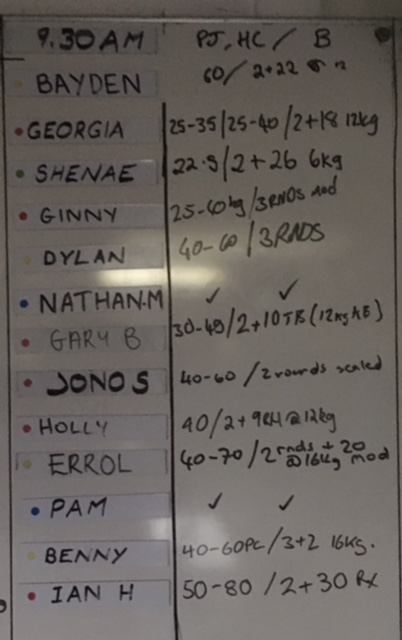 9.30AM PJ, HC / B
BAYDEN 60/2+22
GEORGIA 25-35/25-40/2+18 12kg
SHENAE 22.5/2+26 6kg
GINNY 25-40kg/3RNDS mod
DYLAN 40-60/3RNDS
NATHAN.M ✓ ✓
GARY B 30-45/2+10TB(12kg KB)
JONO S 40-60/2rounds scaled
HOLLY 40/2+9RH@12kg
ERROL 40-70/2rnds+20 @16kg mod
PAM ✓ ✓
BENNY 40-60PC/3+2 16kg.
IAN H 50-80/2+30 Rx